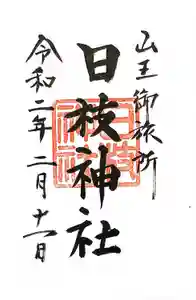 山王御旅所
日枝神社
令和二年二月十一日